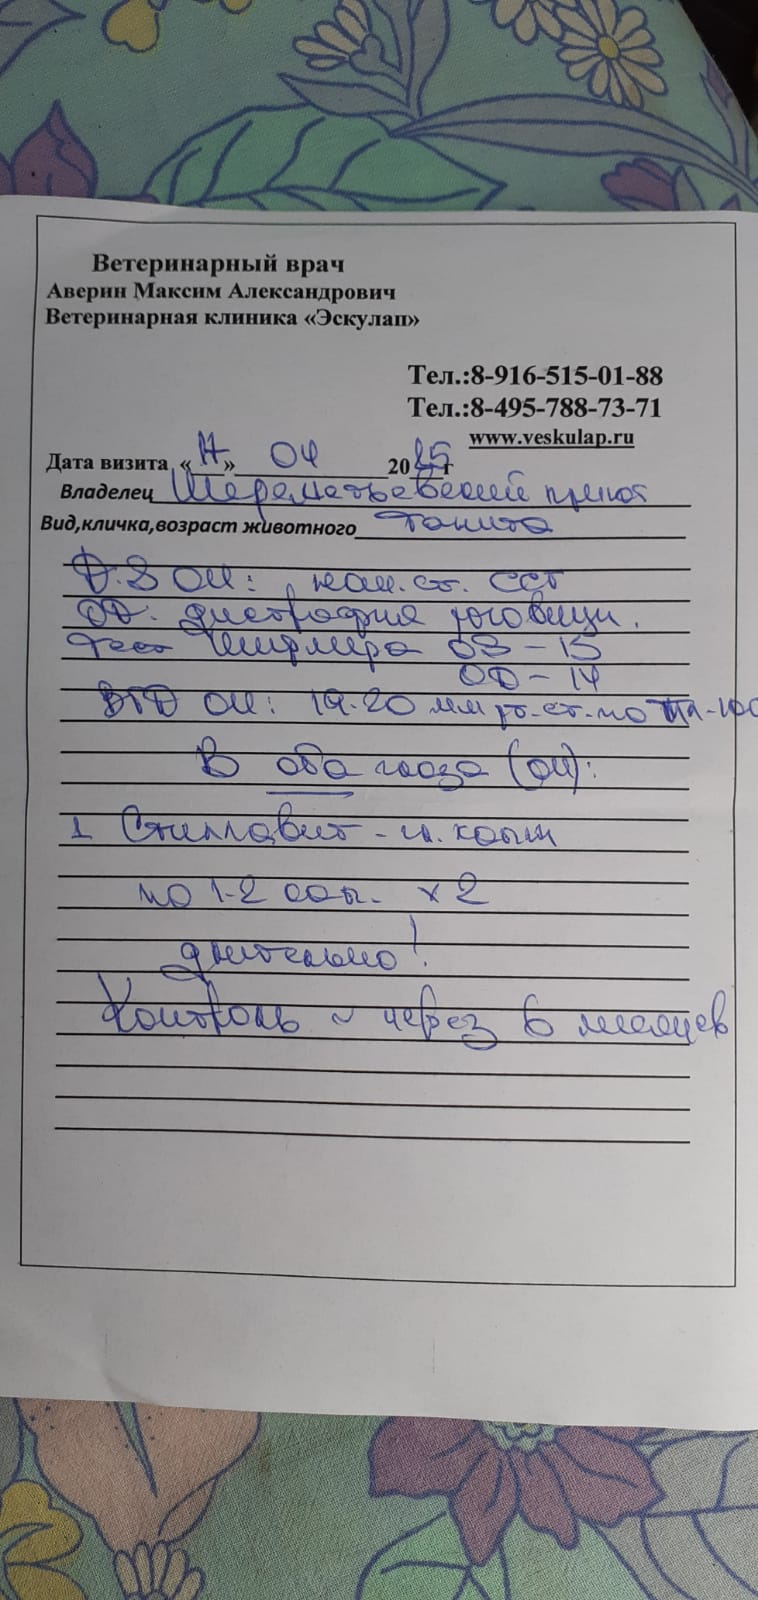 Ветеринарный врач
Аверин Максим Александрович
Ветеринарная клиника «Эскулап»
Тел.:8-916-515-01-88
Тел.:8-495-788-73-71
www.veskulap.ru
Дата визита «17» 04 2025г
Владелец Шереметьевский приют
Вид,кличка,возраст животного Танита
D.S OU: нач. ст. ССГ
ОD. дистрофия роговицы.
Тест Ширмера OS - 15
OD - 14
ВГД OU: 19-20 мм рт. ст. по
В оба глаза (OU):
1 Стиллавит - гл. капли
по 1-2 кап. x 2
длительно!
Контроль ~ через 6 месяцев